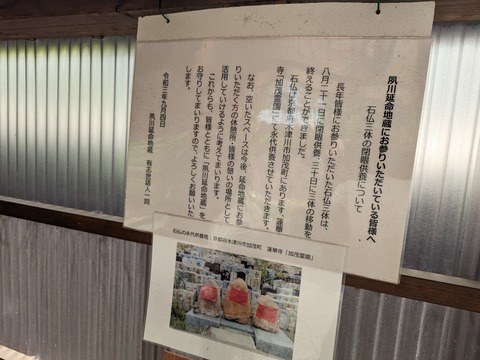 夙川延命地蔵にお参りいただいている皆様へ
石仏三体の閉眼供養について
長年皆様にお参りいただいた石仏三体は、
八月二十一日に閉眼供養、三十日に三体の移動を
終えることができました。
石仏は京都府木津川市加茂町にあります、蓮華
寺「加茂霊園」にて永代供養させていただきます。
なお、空いたスペースは今後、延命地蔵にお参
りいただく方の休憩所・皆様の憩いの場所として
活用していけるように考えてまいります。
これからも、皆様とともに「夙川延命地蔵」を
お守りしてまいりますので、よろしくお願いいた
します。
令和三年九月四日
夙川延命地蔵 有志世話人一同
石仏の永代供養地:京都府木津川市加茂町 蓮華寺「加茂霊園」